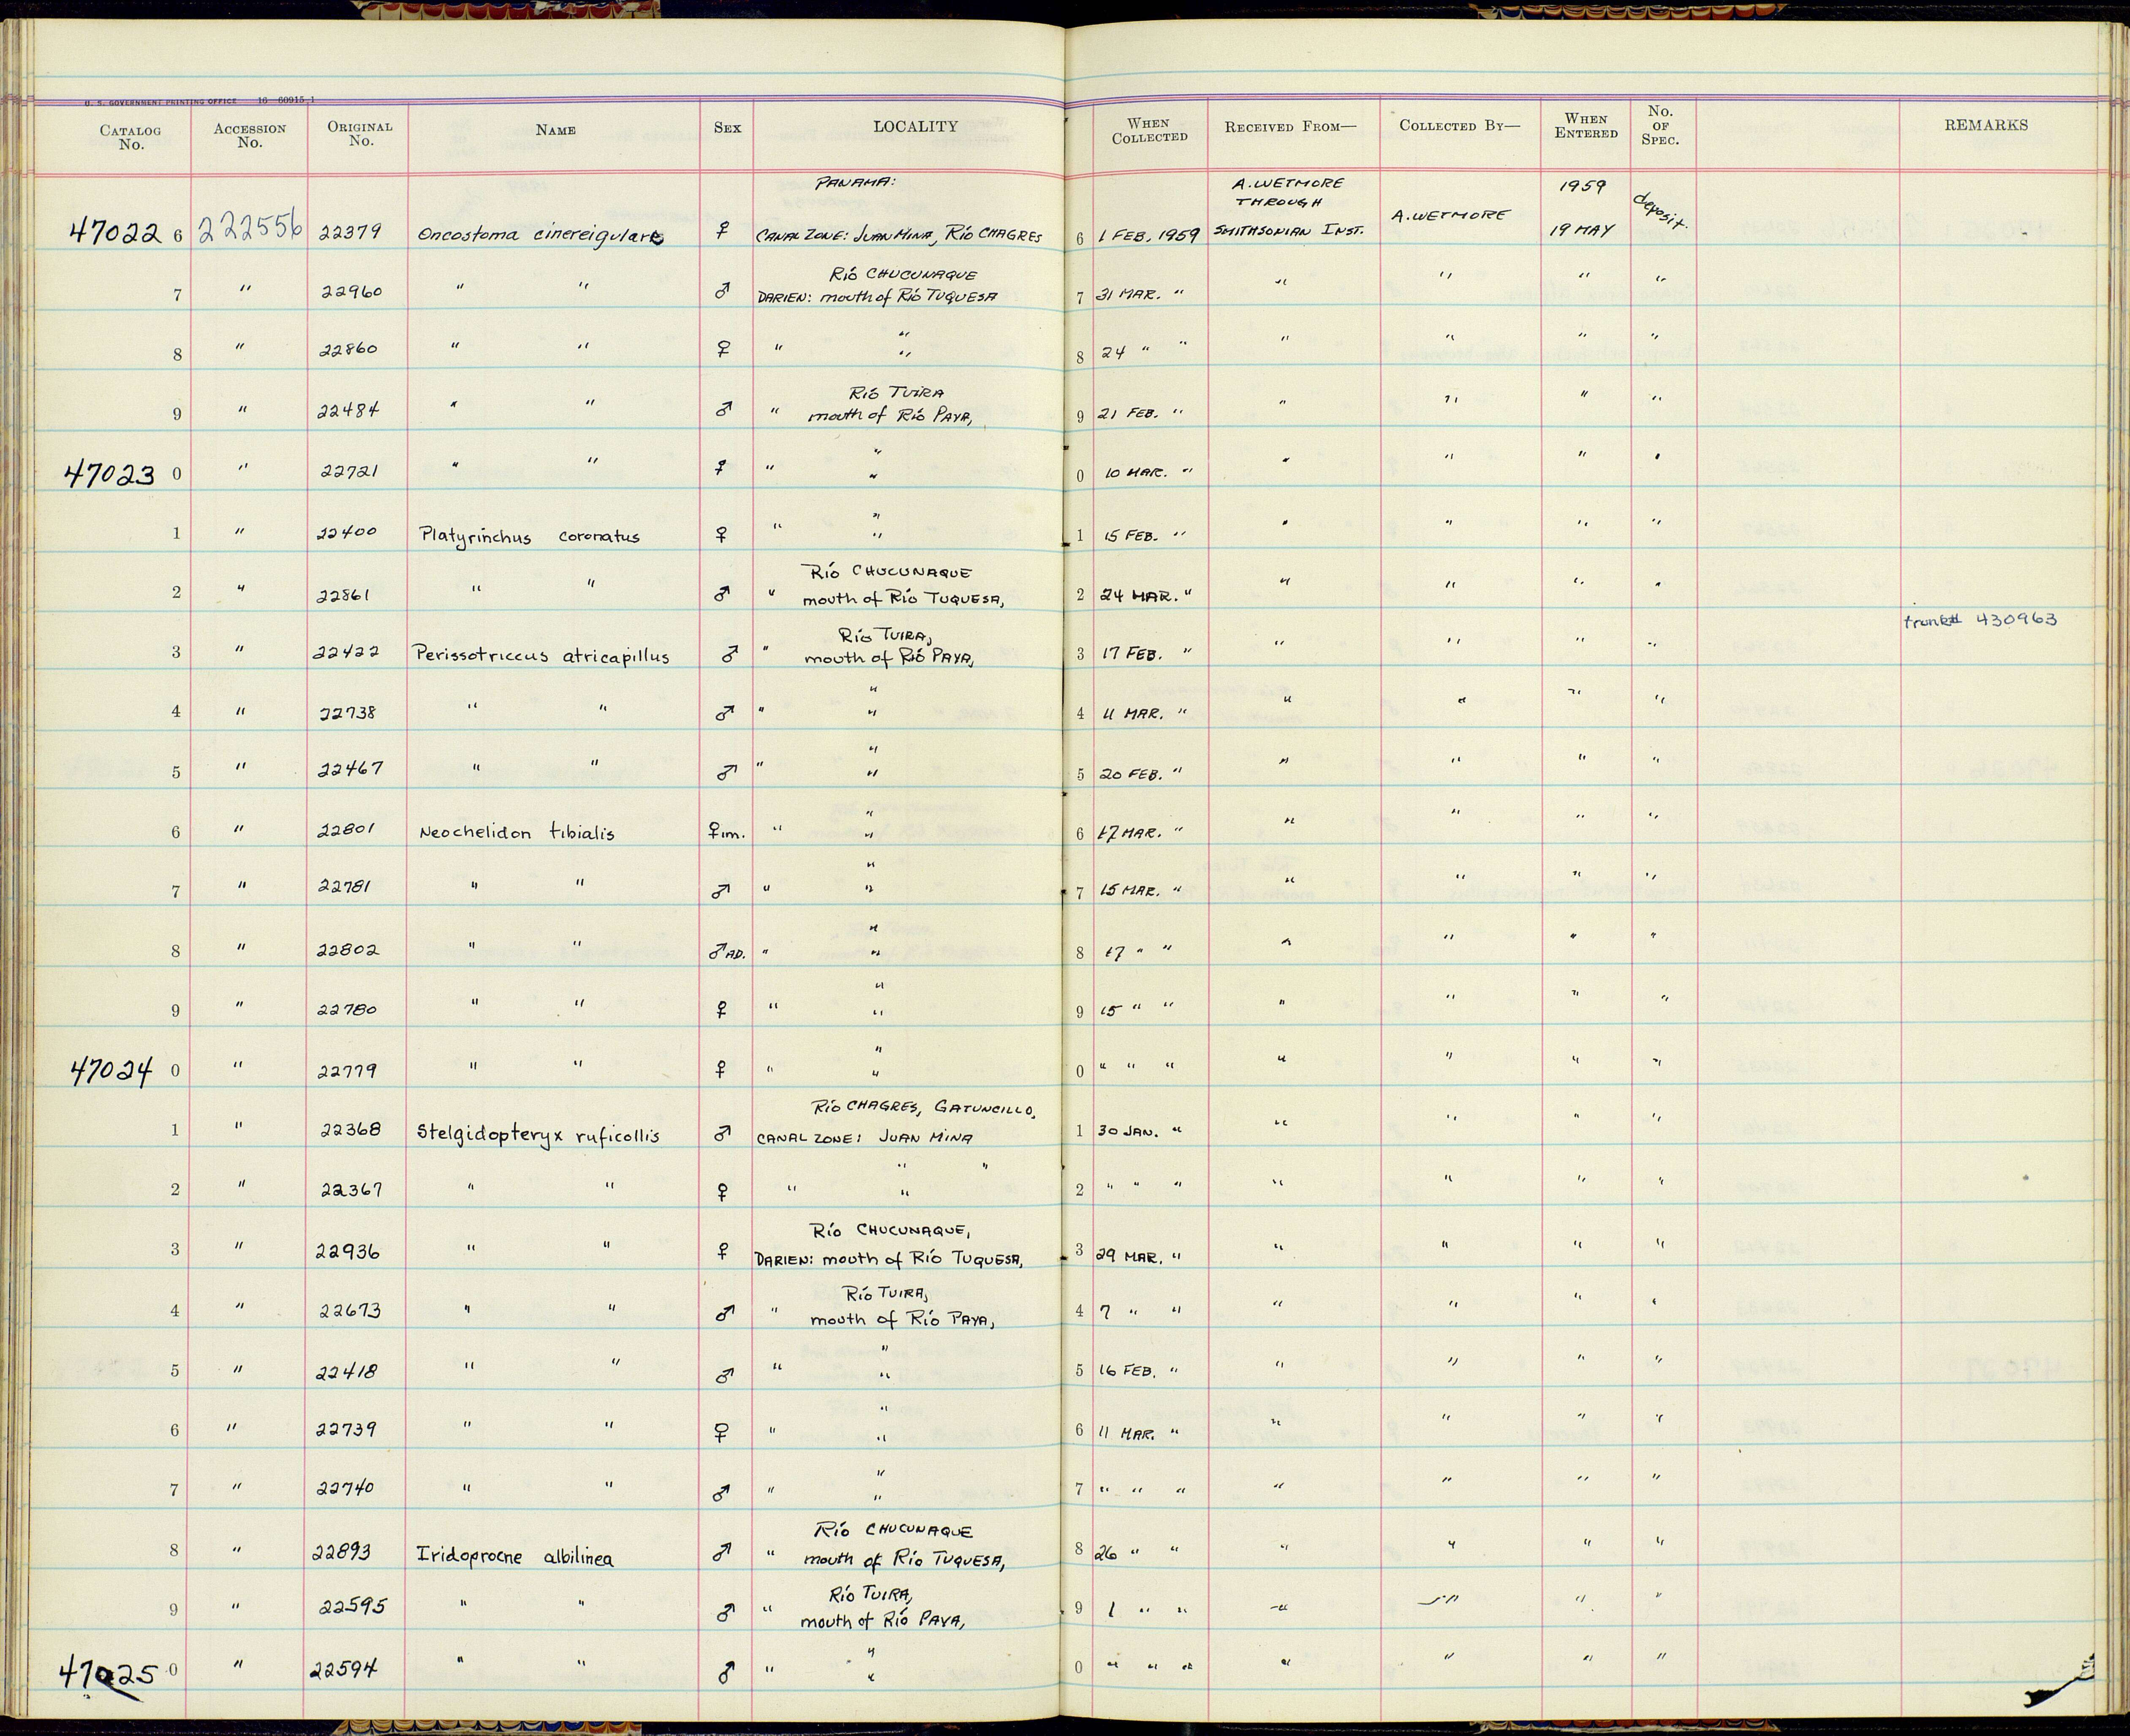 U. S. GOVERNMENT PRINTING OFFICE 16—60915-1
CATALOG No. ACCESSION No. ORIGINAL No. NAME SEX LOCALITY WHEN COLLECTED RECEIVED FROM— COLLECTED BY— WHEN ENTERED No. OF SPEC. REMARKS
PANAMA: A. WETMORE THROUGH 1959
47022 6 222556 22379 Oncostoma cinereigulare ♀ CANAL ZONE: JUAN MINA, RÍO CHAGRES 6 1 FEB. 1959 SMITHSONIAN INST. A. WETMORE 19 MAY deposit.
RÍO CHUCUNAQUE
7 " 22960 " " ♂ DARIEN: mouth of RÍO TUQUESA 7 31 MAR. " " " " "
"
8 " 22860 " " ♀ " " 8 24 " " " " " "
RÍO TUIRA
9 " 22484 " " ♂ " mouth of RÍO PAYA, 9 21 FEB. " " " " "
"
47023 0 " 22721 " " ♀ " " 0 10 MAR. " " " " "
"
1 " 22400 Platyrinchus coronatus ♀ " " 1 15 FEB. " " " " "
RÍO CHUCUNAQUE
2 " 22861 " " ♂ " mouth of RÍO TUQUESA, 2 24 MAR. " " " " "
RÍO TUIRA, trunk# 430963
3 " 22422 Perissotriccus atricapillus ♂ " mouth of RÍO PAYA, 3 17 FEB. " " " " "
"
4 " 22738 " " ♂ " " 4 11 MAR. " " " " "
"
5 " 22467 " " ♂ " " 5 20 FEB. " " " " "
"
6 " 22801 Neochelidon tibialis ♀ im. " " 6 17 MAR. " " " " "
"
7 " 22781 " " ♂ " " 7 15 MAR. " " " " "
"
8 " 22802 " " ♂ AD. " " 8 17 " " " " " "
"
9 " 22780 " " ♀ " " 9 15 " " " " " "
"
47024 0 " 22779 " " ♀ " " 0 " " " " " " "
RÍO CHAGRES, GATUNCILLO,
1 " 22368 Stelgidopteryx ruficollis ♂ CANAL ZONE: JUAN MINA 1 30 JAN. " " " " "
" "
2 " 22367 " " ♀ " " 2 " " " " " " "
RÍO CHUCUNAQUE,
3 " 22936 " " ♀ DARIEN: mouth of RÍO TUQUESA, 3 29 MAR. " " " " "
RÍO TUIRA,
4 " 22673 " " ♂ " mouth of RÍO PAYA, 4 7 " " " " " "
"
5 " 22418 " " ♂ " " 5 16 FEB. " " " " "
"
6 " 22739 " " ♀ " " 6 11 MAR. " " " " "
"
7 " 22740 " " ♂ " " 7 " " " " " " "
RÍO CHUCUNAQUE
8 " 22893 Iridoprocne albilinea ♂ " mouth of RÍO TUQUESA, 8 26 " " " " " "
RÍO TUIRA,
9 " 22595 " " ♂ " mouth of RÍO PAYA, 9 1 " " " " " "
"
47025 0 " 22594 " " ♂ " " 0 " " " " " " "